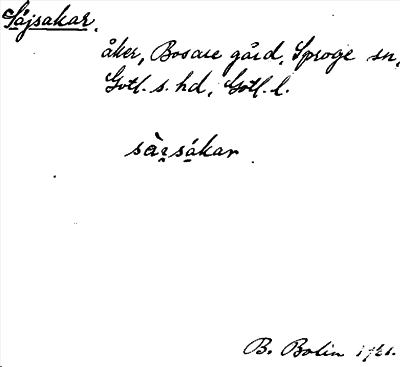 Såjsakar.
åker, Bosarve gård, Sproge sn,
Gotl. s. hd, Gotl. l.
sàrsákar
B. Bolin